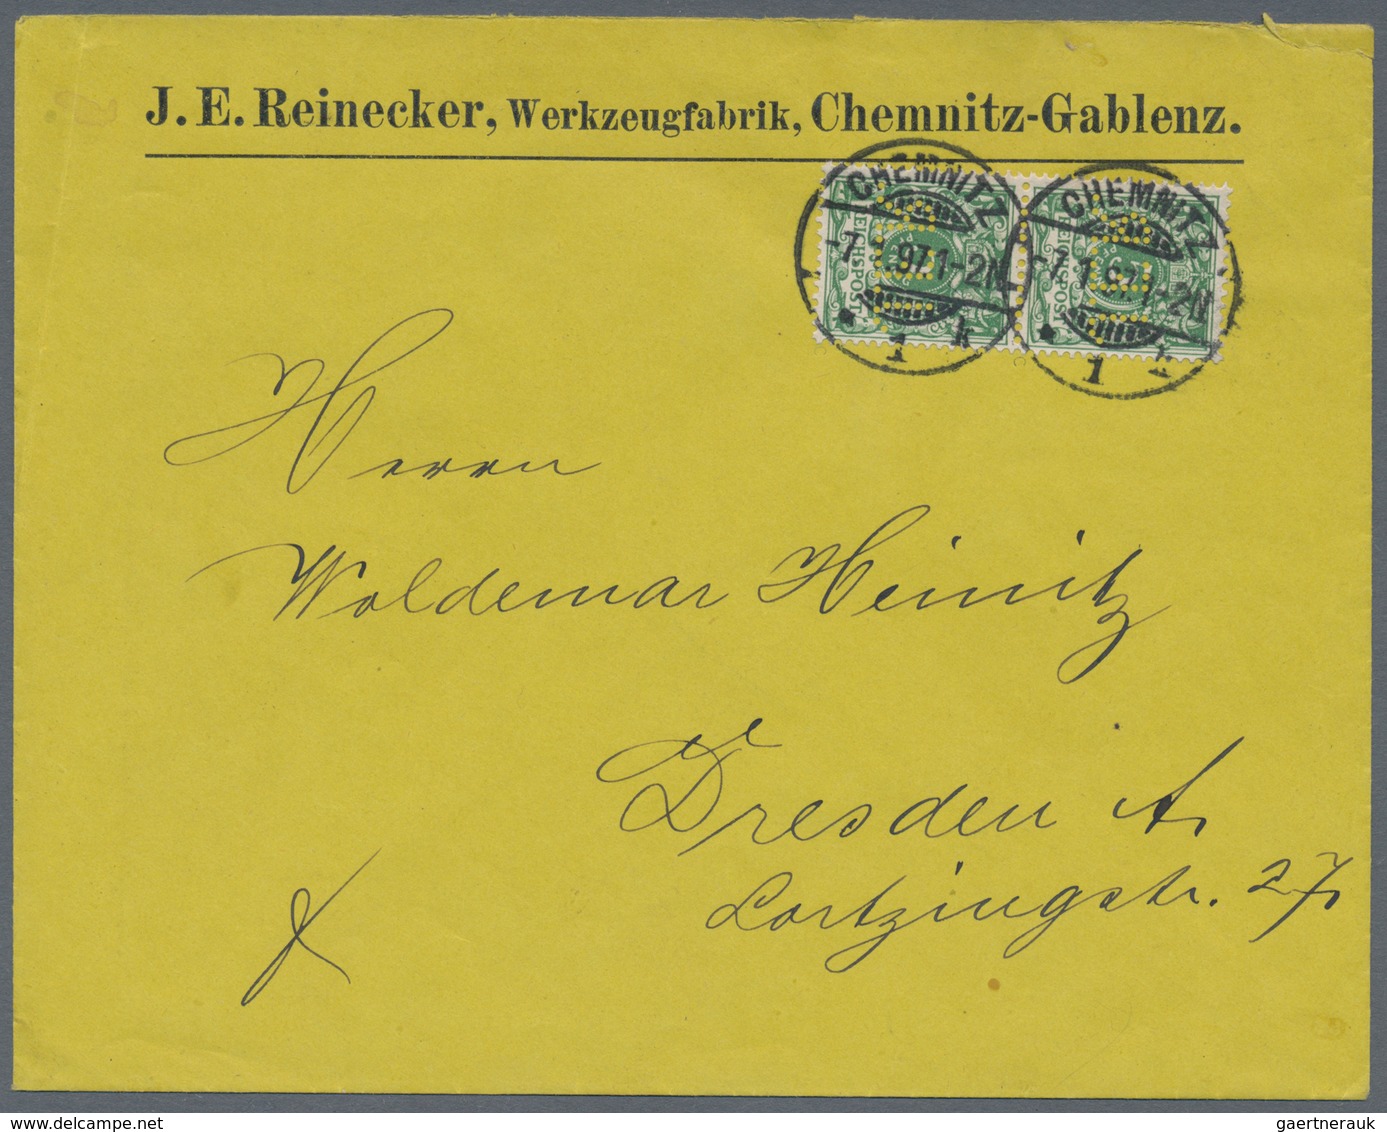 J. E. Reinecker, Werkzeugfabrik, Chemnitz-Gablenz.
CHEMNITZ
CHEMNITZ
REICHSPOST
REICHSPOST
-7.1.97.1-2N
-7.1.97.1-2N
* 1 k
* 1 k
Herrn
Woldemar Heinitz
Dresden A.
Lortzingstr. 27.
gaertnerauk